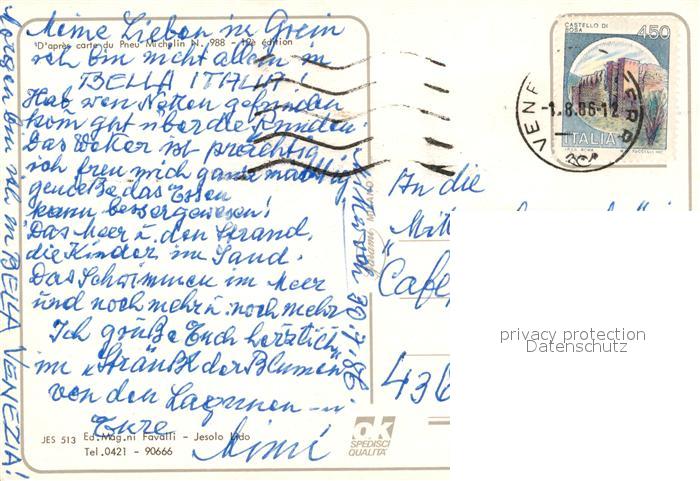 Meine Lieben in Grein
D'après carte du Pneu Michelin N. 988 - 19è édition
ich bin nicht allein in
BELLA ITALIA!
Hab von Netten gefunden
kom gut über die Runden.
Das Weter ist prächtig
ich freu mich ganz mächtig
genieße das Essen
kann besser gewesen!
Das Meer u. den Strand,
die Kinder im Sand.
Das Schwimmen im Meer
und noch mehr u. noch mehr
Ich grüße Euch herzlich
im "Sträußl der Blumen"
von den Lagunen
Eure
Mimi
Morgen bin ich in BELLA VENEZIA!
30.7.86
JES 513 Ed. Mag.ni Favalli - Jesolo Lido
Tel. 0421 - 90666
ok
SPEDISCI
QUALITA'
MILANO
CASTELLO DI
ROSA
450
ITALIA
VENE
-1.8.86-12
An die
"Cafe
436
privacy protection
Datenschutz